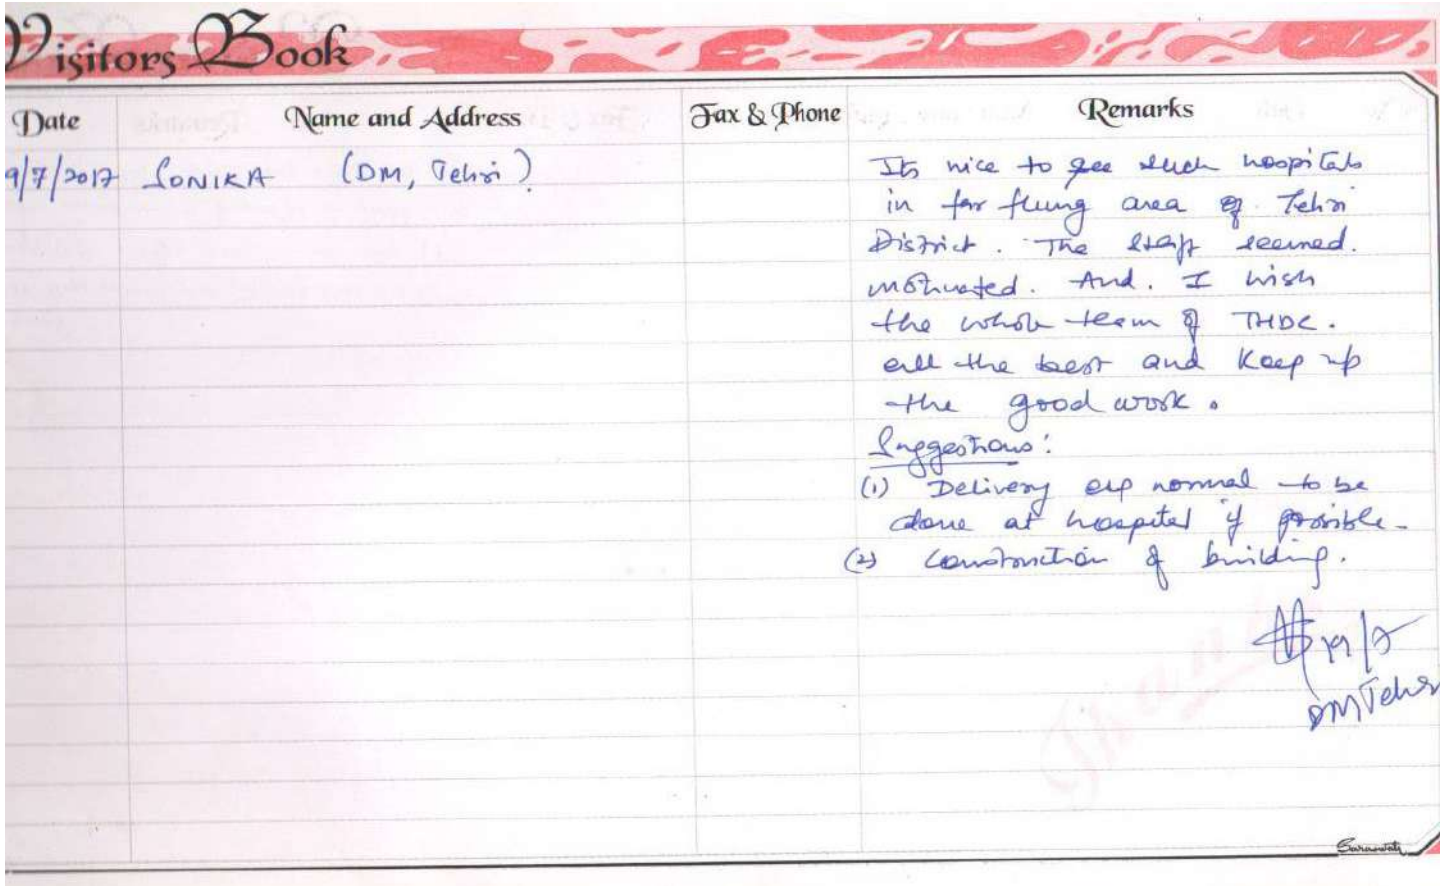 Visitors Book
Date Name and Address Fax & Phone Remarks
9/7/2017 SONIKA (DM, Tehri)
Its nice to see such hospitals
in far flung area of Tehri
District. The staff seemed.
motivated. And. I wish
the whole team of THDC.
all the best and Keep up
the good work.
Suggestions:
(1) Delivery esp normal to be
done at hospital if possible-
(2) Construction of building.
19/7
DM Tehri
Thank
Saraswati